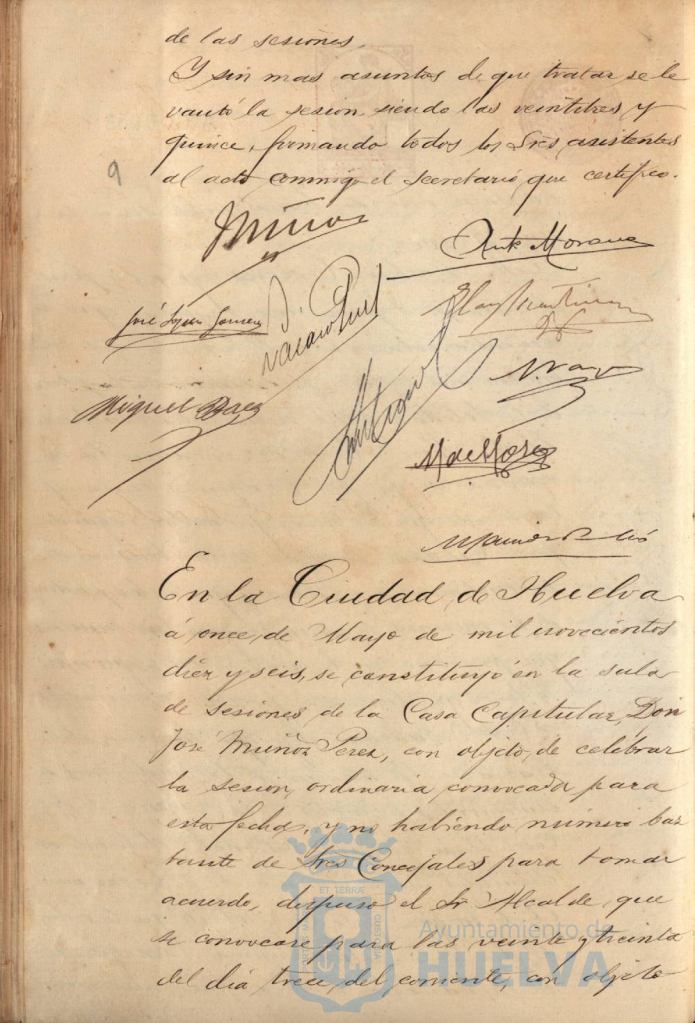 de las sesiones.
Y sin mas asuntos de que tratar se le
vantó la sesion siendo las veintitres y
quince, firmando todos los Sres asistentes
al acto conmigo el Secretario que certifico.
9
Muñoz
Antº Morano
José
Miguel Baez
En la Ciudad de Huelva
á once de Mayo de mil novecientos
diez y seis, se constituyó en la sala
de sesiones de la Casa Capitular, Don
José Muñoz Perez, con objeto de celebrar
la sesion ordinaria convocada para
esta fecha, y no habiendo número bas
tante de Sres Concejales para tomar
acuerdo, dispuso el Sr Alcalde que
se convocase para las veinte y treinta
del dia trece del corriente, con objeto
Ayuntamiento de
HUELVA